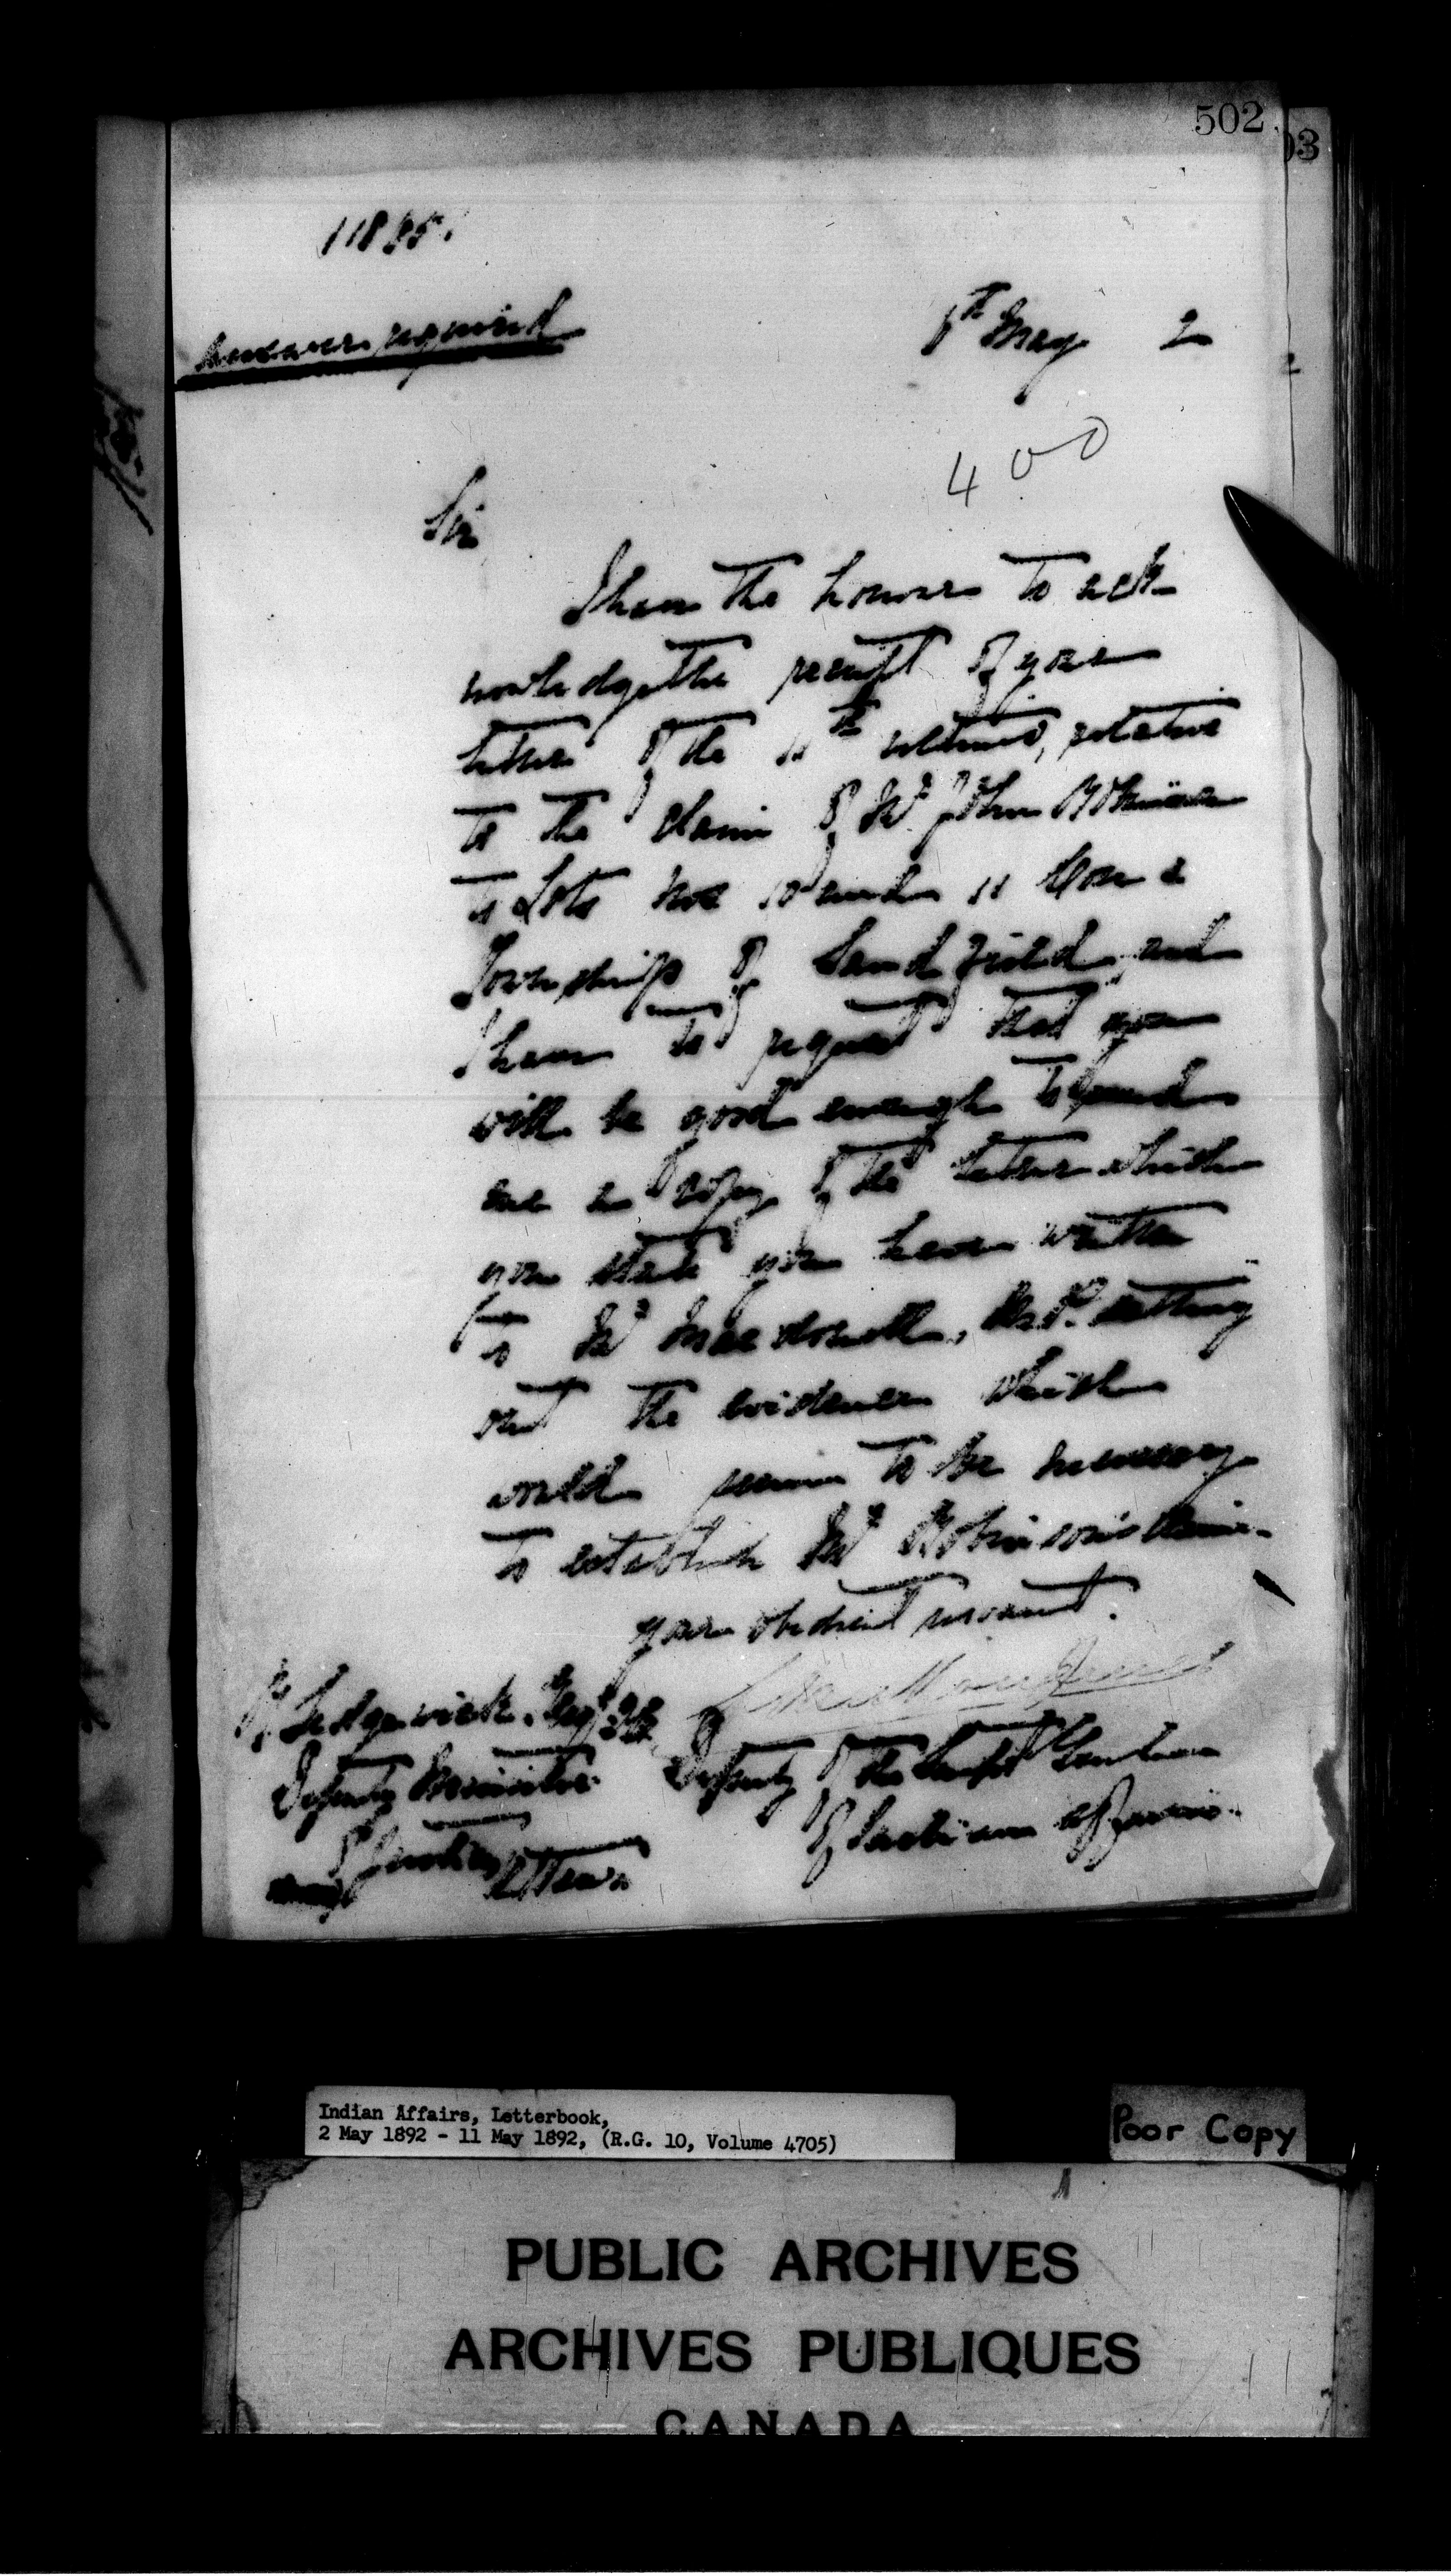 502
03
11835.
Answer required
6th May 2
400
Sir
I have the honour to ack-
nowledge the receipt of your
letter of the 11th ultimo, relative
to the claim of Mr John Robinson
to Lots Nos 10 and 11 Con 2
Township of Sandfield and
I have to request that you
will be good enough to send
me a copy of the letter which
you state you have written
to Mr Macdonell, M.P. setting
out the evidence which
would seem to be necessary
to establish Mr Robinson's claim.
your obedient servant.
R. Sedgewick, Esq. Q.C.
Deputy Minister Deputy of the Supt General
of Justice of Indian Affairs.
Ottawa
Indian Affairs, Letterbook,
2 May 1892 - 11 May 1892, (R.G. 10, Volume 4705)
Poor Copy
PUBLIC ARCHIVES
ARCHIVES PUBLIQUES
CANADA